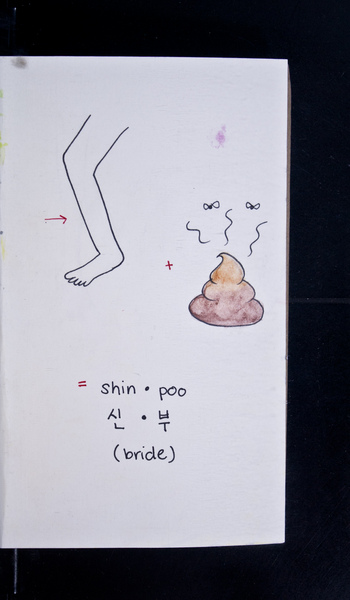 +
= shin • poo
신 • 부
(bride)